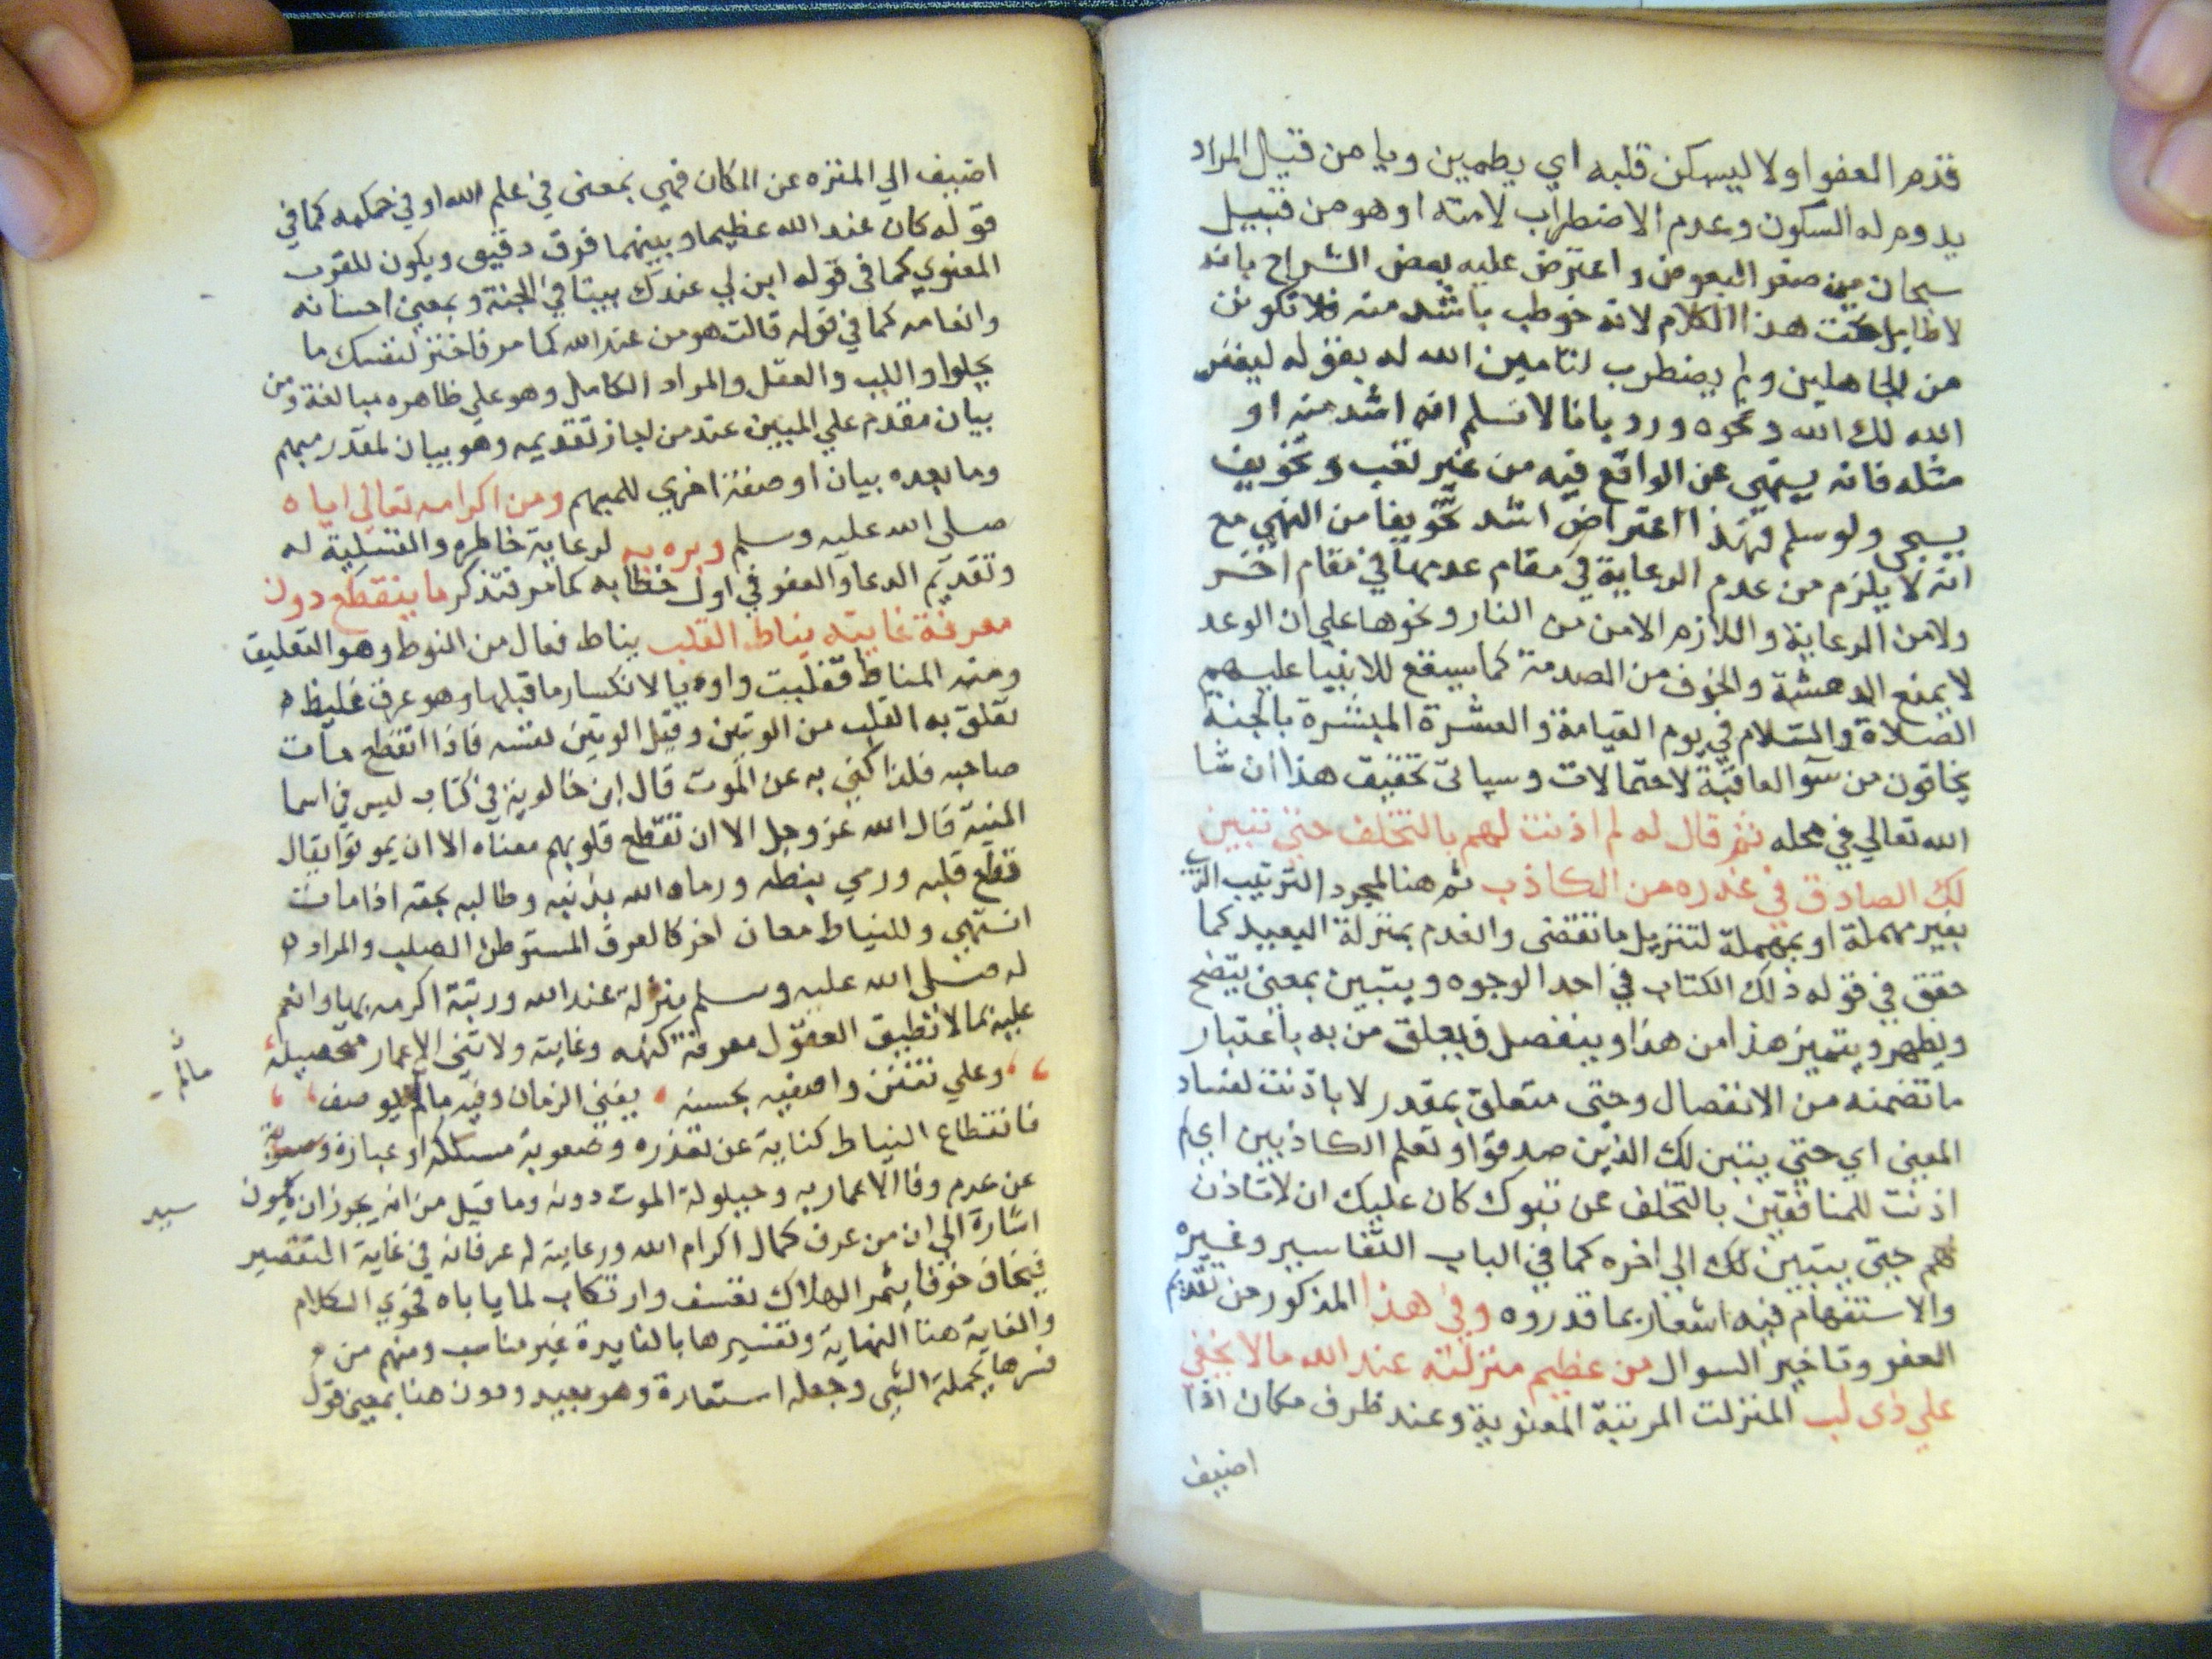 قدم العفو اولا ليسكن قلبه اي يطمين ويا من قبيل المراد
يدوم له السكون وعدم الاضطراب لامته او هو من قبيل
سبحان من صغر البعوض واعترض عليه بعض الشراح بانه
لا طايل تحت هذا الكلام لانه خوطب باشد منه فلا تكونن
من الجاهلين ولم يضطرب لتامين الله له بقوله ليغفر
الله لك الله ونحوه ورد بانا لا نسلم انه اشد منه او
مثله فانه ينهى عن الواقع فيه من غير تعب وتخويف
يسجي ولو سلم فهذا اعتراض اشد تخويفا من النهي مع
انه لا يلزم من عدم الرعاية في مقام عدمها في مقام اخر
ولا من الرعاية واللازم الامن من النار ونحوها علي ان الوعد
لا يمنع الدهشة والخوف من الصدمة كما سيقع للانبيا عليهم
الصلاة والسلام في يوم القيامة والعشرة المبشرة بالجنة
يخافون من سوالعاقبة لاحتمالات وسياتي تحقيق هذا ان شا
الله تعالي في محله ثم قال له لم اذنت لهم بالتخلف حتي تتبين
لك الصادق في عذره من الكاذب ثم هنا لمجرد الترتيب
بغير مهملة او بمهملة لتنزيل ما تقضى والعدم بمنزلة البعيد كما
حقق في قوله ذلك الكتاب في احد الوجوه ويتبين بمعنى يتضح
ويظهر ويتميز هذا من هذا وينفصل فيعلق من به باعتبار
ما تضمنه من الانفصال وحتى متعلق بمقدر لا باذنت لفساد
المعنى اي حتي يتبين لك الذين صدقوا وتعلم الكاذبين اي لم
اذنت للمنافقين بالتخلف عن تبوك كان عليك ان لا تاذن
لهم حتى يتبين لك الي اخره كما في الباب التفاسير وغيره
والاستفهام فيه اشعار بما قدروه وفي هذا المذكور من تقديم
العفو وتاخير السوال من عظيم منزلته عند الله ما لا يخفي
علي ذي لب المنزلت المرتبة المعنوية وعند ظرف مكان اذا
اضيف
اضيف الي المنزه عن المكان فهي بمعنى في علم الله او في حكمه كما في
قوله كان عند الله عظيما وبينهما فرق دقيق ويكون للقرب
المعنوي كما في قوله ابن لي عندك بيتا في الجنة وبمعنى احسانه
وانعامه كما في قوله قالت هو من عند الله كما مر فاختر لنفسك ما
يحلوا واللب والعقل والمراد الكامل وهو علي ظاهره مبالغة ومن
بيان مقدم علي المبين عند من اجاز تقديمه وهو بيان لمقدر مبهم
وما بعده بيان او صفة اخري للمبهم ومن اكرامه تعالي اياه
صلي الله عليه وسلم وبره به لرعاية خاطره والتسلية له
وتقديم الدعا والعفو في اول خطابه كما مر فتذكر ما ينقطع دون
معرفة غايته نياط القلب نياط فعال من النوط وهو التعليق
ومنه المناط فقلبت واوه يا لانكسار ما قبلها وهو عرق غليظ
تعلق به القلب من الوتين وقيل الوتين نفسه فاذا انقطع مات
صاحبه فلذا كني به عن الموت قال ابن خالويه في كتاب ليس في اسما
المنية قال الله عز وجل الا ان تقطع قلوبهم معناه الا ان يموتوا يقال
قطع قلبه ورمي بنطه ورماه الله بذنبه وطالبه بحقه اذا مات
انتهي وللنياط معان اخر كالعرق المستوطن الصلب والمراد ان
له صلي الله عليه وسلم منزلة عند الله ورتبة اكرمه بها وانعم
عليه بما لا تطيق العقول معرفة كنهه وغايته ولا تفي الاعمار بتحصيله
وعلي تفنن واصفيه بحسنه يفني الزمان وفيه ما لم يوصف
مالم
فانقطاع النياط كناية عن تعذره وصعوبة مسلكه او عبارة
عن عدم وفا الاعمار به وحيلولة الموت دونه وما قيل من انه يجوز ان يكون
سيد
اشارة الي ان من عرف كمال اكرام الله ورعايته له عرفانه في غاية التقصير
فيخاف خوفا يثمر الهلاك تعسف وارتكاب لما ياباه فحوي الكلام
والغاية هنا النهاية وتفسيرها بالفايدة غير مناسب ومنهم من
فسرها بجملة الشي وجعله استعارة وهو بعيد ودون هنا بمعنى قول